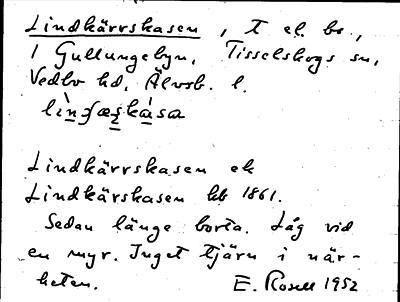 Lindkärrskasen, t el. bs.,
i Gullungebyn, Tisselskogs sn,
Vedbo hd, Älvsb. l.
Lindkärrskasen ek
Lindkärskasen hb 1861.
Sedan länge borta. Låg vid
en myr. Inget tjärn i när-
heten. E. Rosell 1952